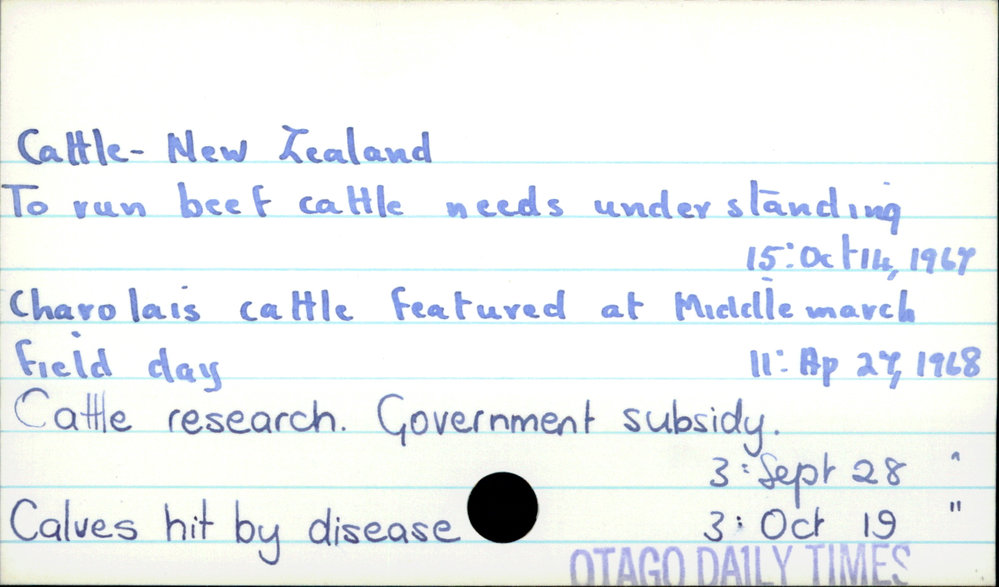 Cattle- New Zealand
To run beef cattle needs understanding
15: Oct 14, 1967
Charolais cattle featured at Middlemarch
field day 11: Ap 27, 1968
Cattle research. Government subsidy.
3: Sept 28 "
Calves hit by disease 3: Oct 19 "
OTAGO DAILY TIMES